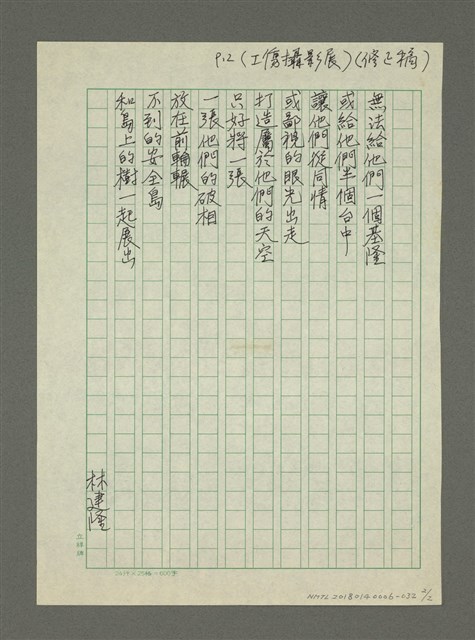 P.2（工傷攝影展）（修正稿）
無法給他們一個基隆
或給他們半個台中
讓他們從同情
或鄙視的眼光出走
打造屬於他們的天空
只好將一張
一張他們的破相
放在前輪輾
不到的安全島
和島上的樹一起展出
林建隆
24行×25格=600字
NMTL20180140006-032 2/2